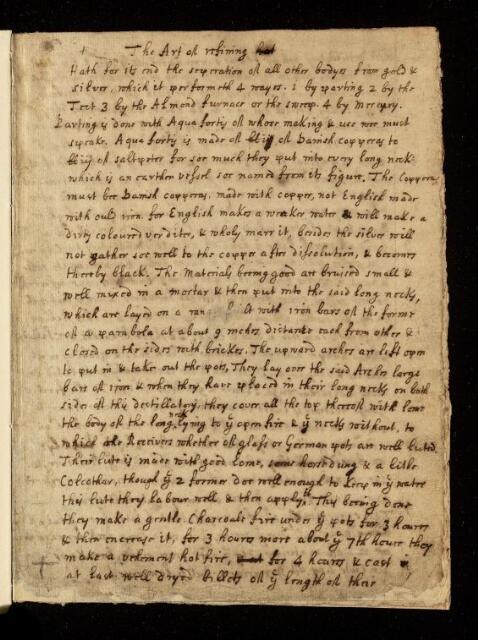 The Art of refining
Hath for its end the seperation of all other bodyes from gold &
silver, which is performeth 4 wayes. 1 by parting 2 by the
Test 3 by the Almond furnace or the sweep. 4 by Mercury.
Parting is done with Aqua fortis of whose making & use wee must
speake. Aqua fortis is made of of Dansk copperas to
of saltpeter for soe much they put into every long neck
which is an earthen vessel soe named from its figure. The Copperas
must bee Dansk copperas. made with copper, not English made
with old iron. for English makes a weaker water & will make a
dirty coloured verditer, & wholy marr it, besides the silver will
not gather soe well to the copper after dissolution, & becomes
thereby black. The Materials beeing good are bruised small &
well mixed in a mortar & then put into the said long necks,
which are layed on a with iron bars of the forme
of a parabola at about 9 inches distance each from other &
closed on the sides with brickes. The upward arches are left open
to put in & take out the pots. They lay over the said Arches large
bars of iron & when they have placed in their long necks on both
sides of this destillatory, they cover all the top thereof with lome
the body of the long neck lying to ye open fire & ye necks without, to
which the Receivers whether of glass or German pots are well luted.
Their lute is made with good lome, some horsdung & a litle
Colcothar, though ye 2 former doe well enough to keep in ye water
this lute they labour well & then apply it. This being done
they make a gentle Charcoale fire under ye pots for 3 houres
& then encrease it, for 3 houres more about ye 7th houre they
make a vehement hot fire, for 4 houres & cast
at last well dryed billets of ye length of their